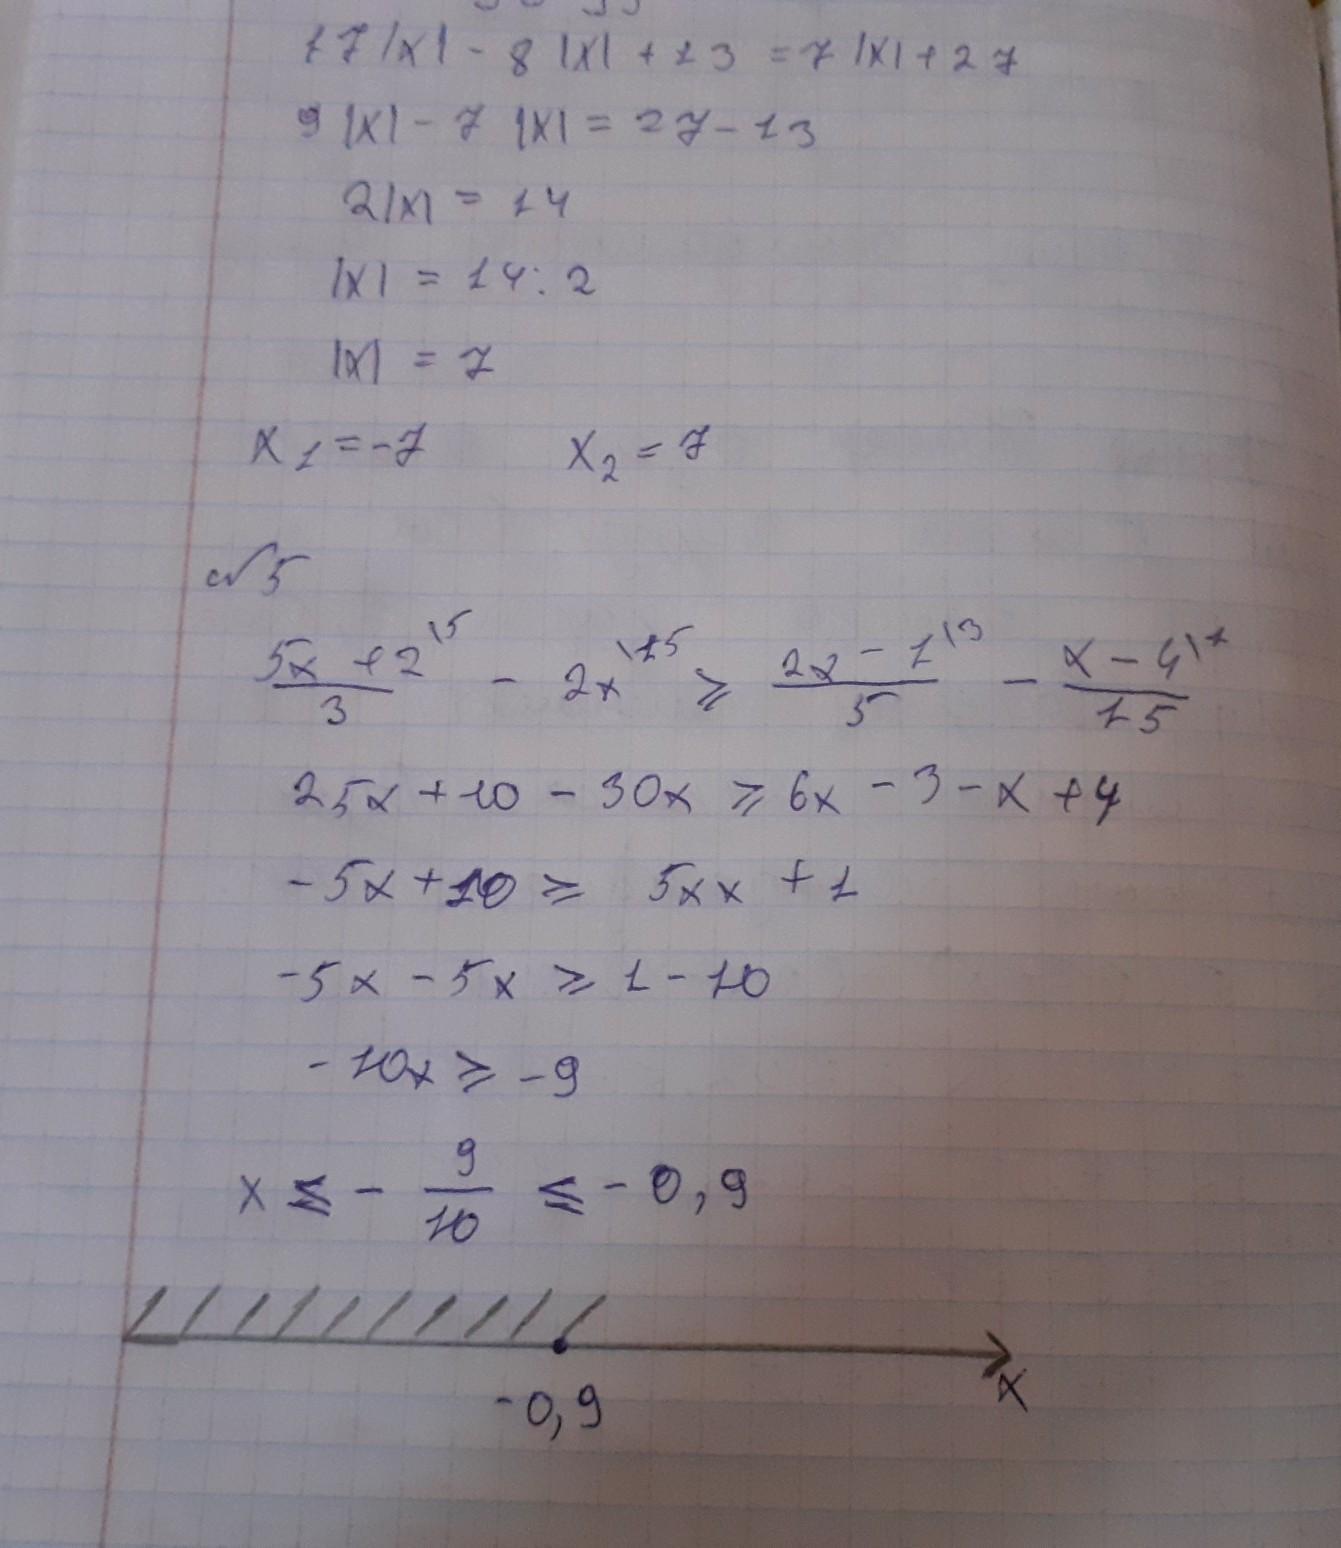 17|x| - 8|x| + 13 = 7|x| + 27
9|x| - 7|x| = 27 - 13
2|x| = 14
|x| = 14 : 2
|x| = 7
x₁ = -7 x₂ = 7
№5
(5x + 2)/3 \5 - 2x \15 ⩾ (2x - 1)/5 \3 - (x - 4)/15 \1
25x + 10 - 30x ⩾ 6x - 3 - x + 4
-5x + 10 ⩾ 5xx + 1
-5x - 5x ⩾ 1 - 10
-10x ⩾ -9
x ⩽ - 9/10 ⩽ - 0,9
-0,9 x